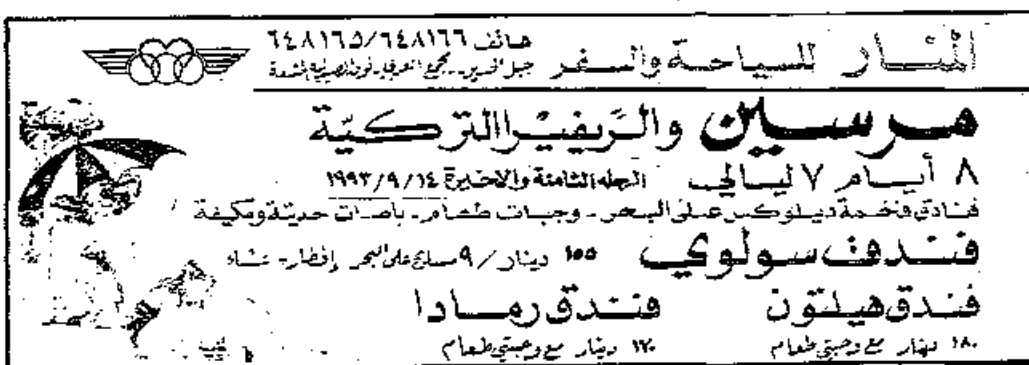 المنار للسياحة والسفر
هاتف ٦٤٨١٦٥/٦٤٨١٦٦
جبل الحسين - مجمع
مرسين والريفيرا التركية
٨ أيام ٧ ليالي الرحلة الثامنة والاخيرة ١٩٩٣/٩/١٤
فنادق فخمة ديلوكس على البحر - وجبات طعام - باصات حديثة ومكيفة
فندق سولوي ١٥٥ دينار / ٩ مسابح على البحر إفطار - عشاء
فندق هيلتون
١٨٠ دينار مع وجبتي طعام
فندق رمادا
١٧٠ دينار مع وجبتي طعام